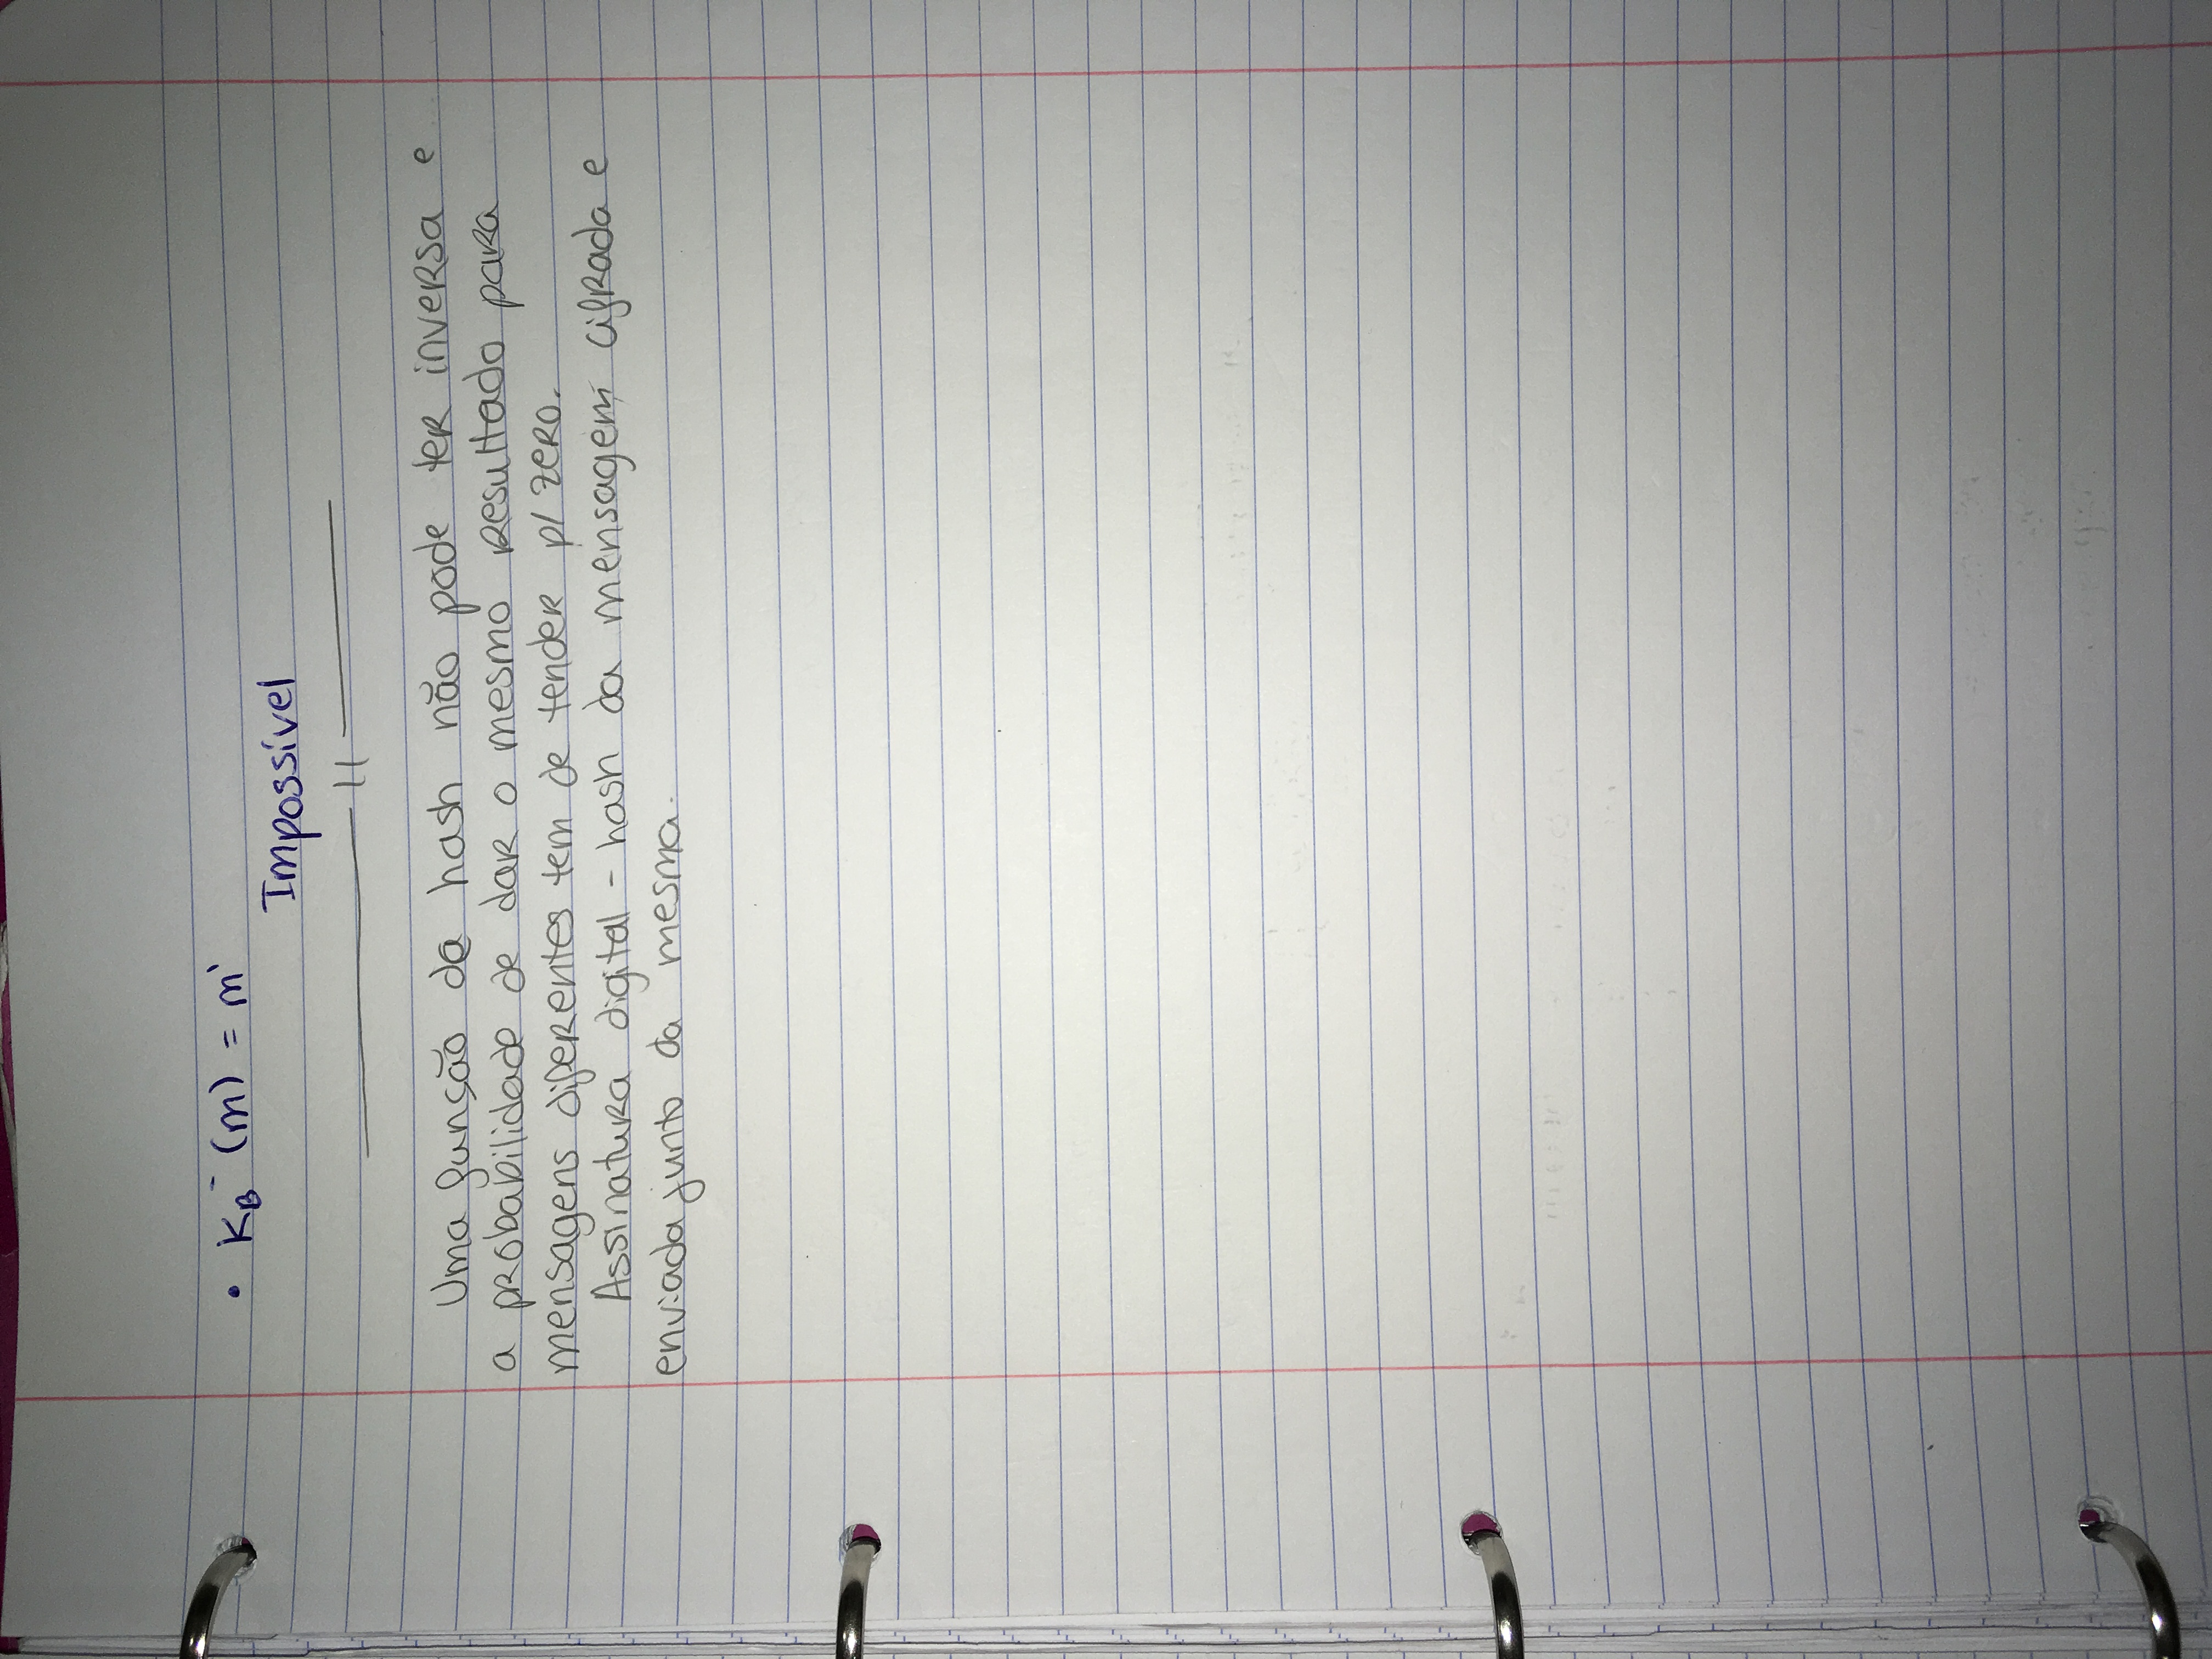 • K_B^- (m) = m'
Impossível
—— // ——
Uma função de hash não pode ter inversa e
a probabilidade de dar o mesmo resultado para
mensagens diferentes tem de tender p/ zero.
Assinatura digital - hash da mensagem cifrada e
enviada junto da mesma.